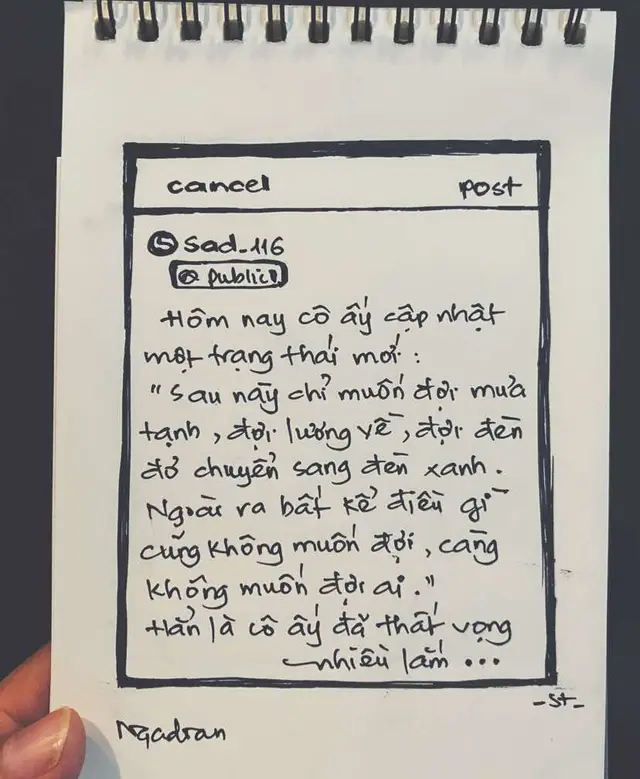 cancel post
sad_116
public
Hôm nay cô ấy cập nhật
một trạng thái mới :
" Sau này chỉ muốn đợi mưa
tạnh , đợi lương về , đợi đèn
đỏ chuyển sang đèn xanh .
Ngoài ra bất kể điều gì
cũng không muốn đợi , càng
không muốn đợi ai . "
Hẳn là cô ấy đã thất vọng
nhiều lắm ...
_st_
Ngadran